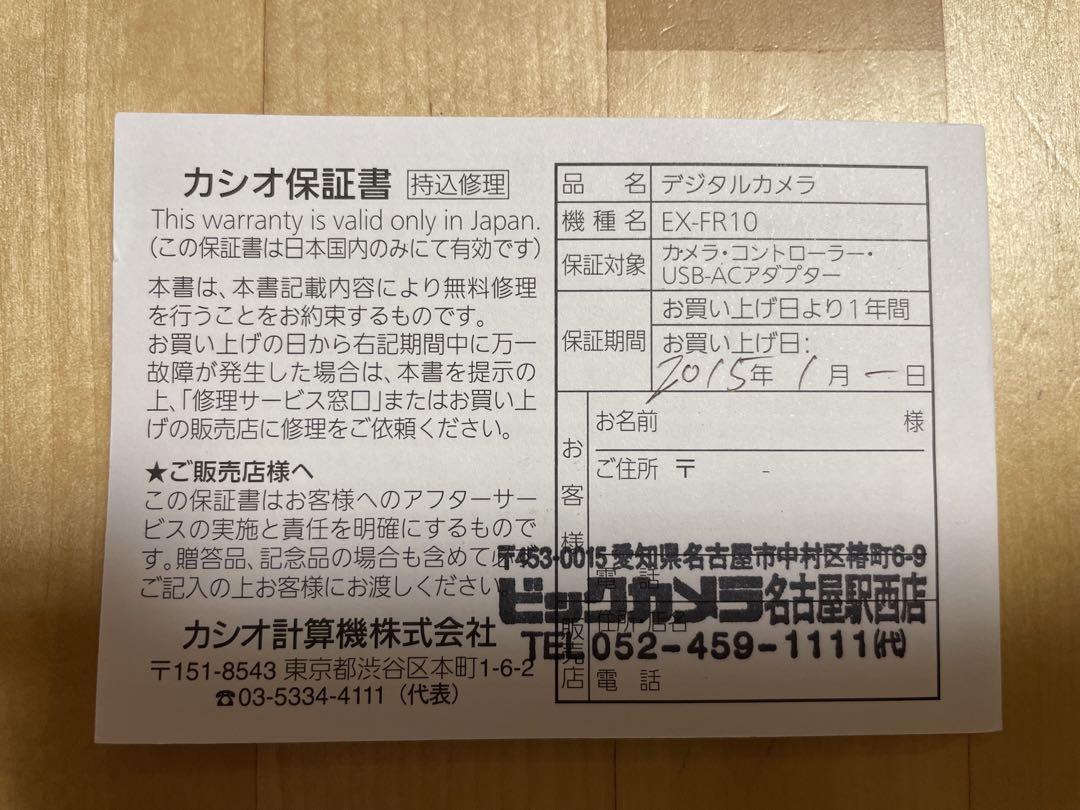 カシオ保証書 持込修理
This warranty is valid only in Japan.
（この保証書は日本国内のみにて有効です）
本書は、本書記載内容により無料修理
を行うことをお約束するものです。
お買い上げの日から右記期間中に万一
故障が発生した場合は、本書を提示の
上、「修理サービス窓口」またはお買い上
げの販売店に修理をご依頼ください。
★ご販売店様へ
この保証書はお客様へのアフターサー
ビスの実施と責任を明確にするもので
す。贈答品、記念品の場合も含めて必ず
ご記入の上お客様にお渡しください。
カシオ計算機株式会社
〒151-8543 東京都渋谷区本町1-6-2
☎03-5334-4111（代表）
品名 デジタルカメラ
機種名 EX-FR10
保証対象 カメラ・コントローラー・
USB-ACアダプター
保証期間 お買い上げ日より1年間
お買い上げ日：
2015年 1月 一日
お客様 お名前 様
ご住所 〒 -
電話
販売店 住所・店名
電話
〒453-0015 愛知県名古屋市中村区椿町6-9
ビックカメラ名古屋駅西店
TEL 052-459-1111㈹